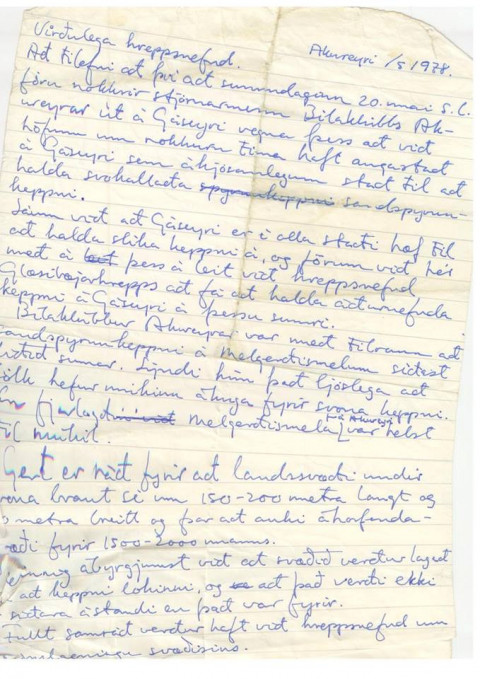 Akureyri /5 1978.
Virðulega hreppsnefnd.
Að tilefni að því að sunnudaginn 20. maí s.l.
fóru nokkrir stjórnarmenn Bílaklúbbs Ak-
ureyrar út á Gáseyri vegna þess að við
höfum um nokkurn tíma haft augastað
á Gáseyri sem ákjósanlegum stað til að
halda svokallaða sandspyrnu-
keppni.
Sáum við að Gáseyri er í alla staði hæf til
að halda slíka keppni á, og förum við hér
með á þess á leit við hreppsnefnd
Glæsibæjarhrepps að fá að halda áðurnefnda
keppni á Gáseyri á þessu sumri.
Bílaklúbbur Akureyrar var með tilraun að
sandspyrnukeppni á melgerðismelum síðast
liðið sumar. Sýndi hún það ljóslega að
fólk hefur mikinn áhuga fyrir svona keppni.
en fjarlægð melgerðismela frá Akureyri var helst
til mikil.
Gert er ráð fyrir að landssvæði undir
svona braut sé um 150-200 metra langt og
metra breitt og þar að auki áhorfenda-
svæði fyrir 1500-2000 manns.
Einnig ábyrgjumst við að svæðið verður lagað
að keppni lokinni, og að það verði ekki
í síðara ástandi en það var fyrir.
Fullt samráð verður haft við hreppsnefnd um
svæðisins.